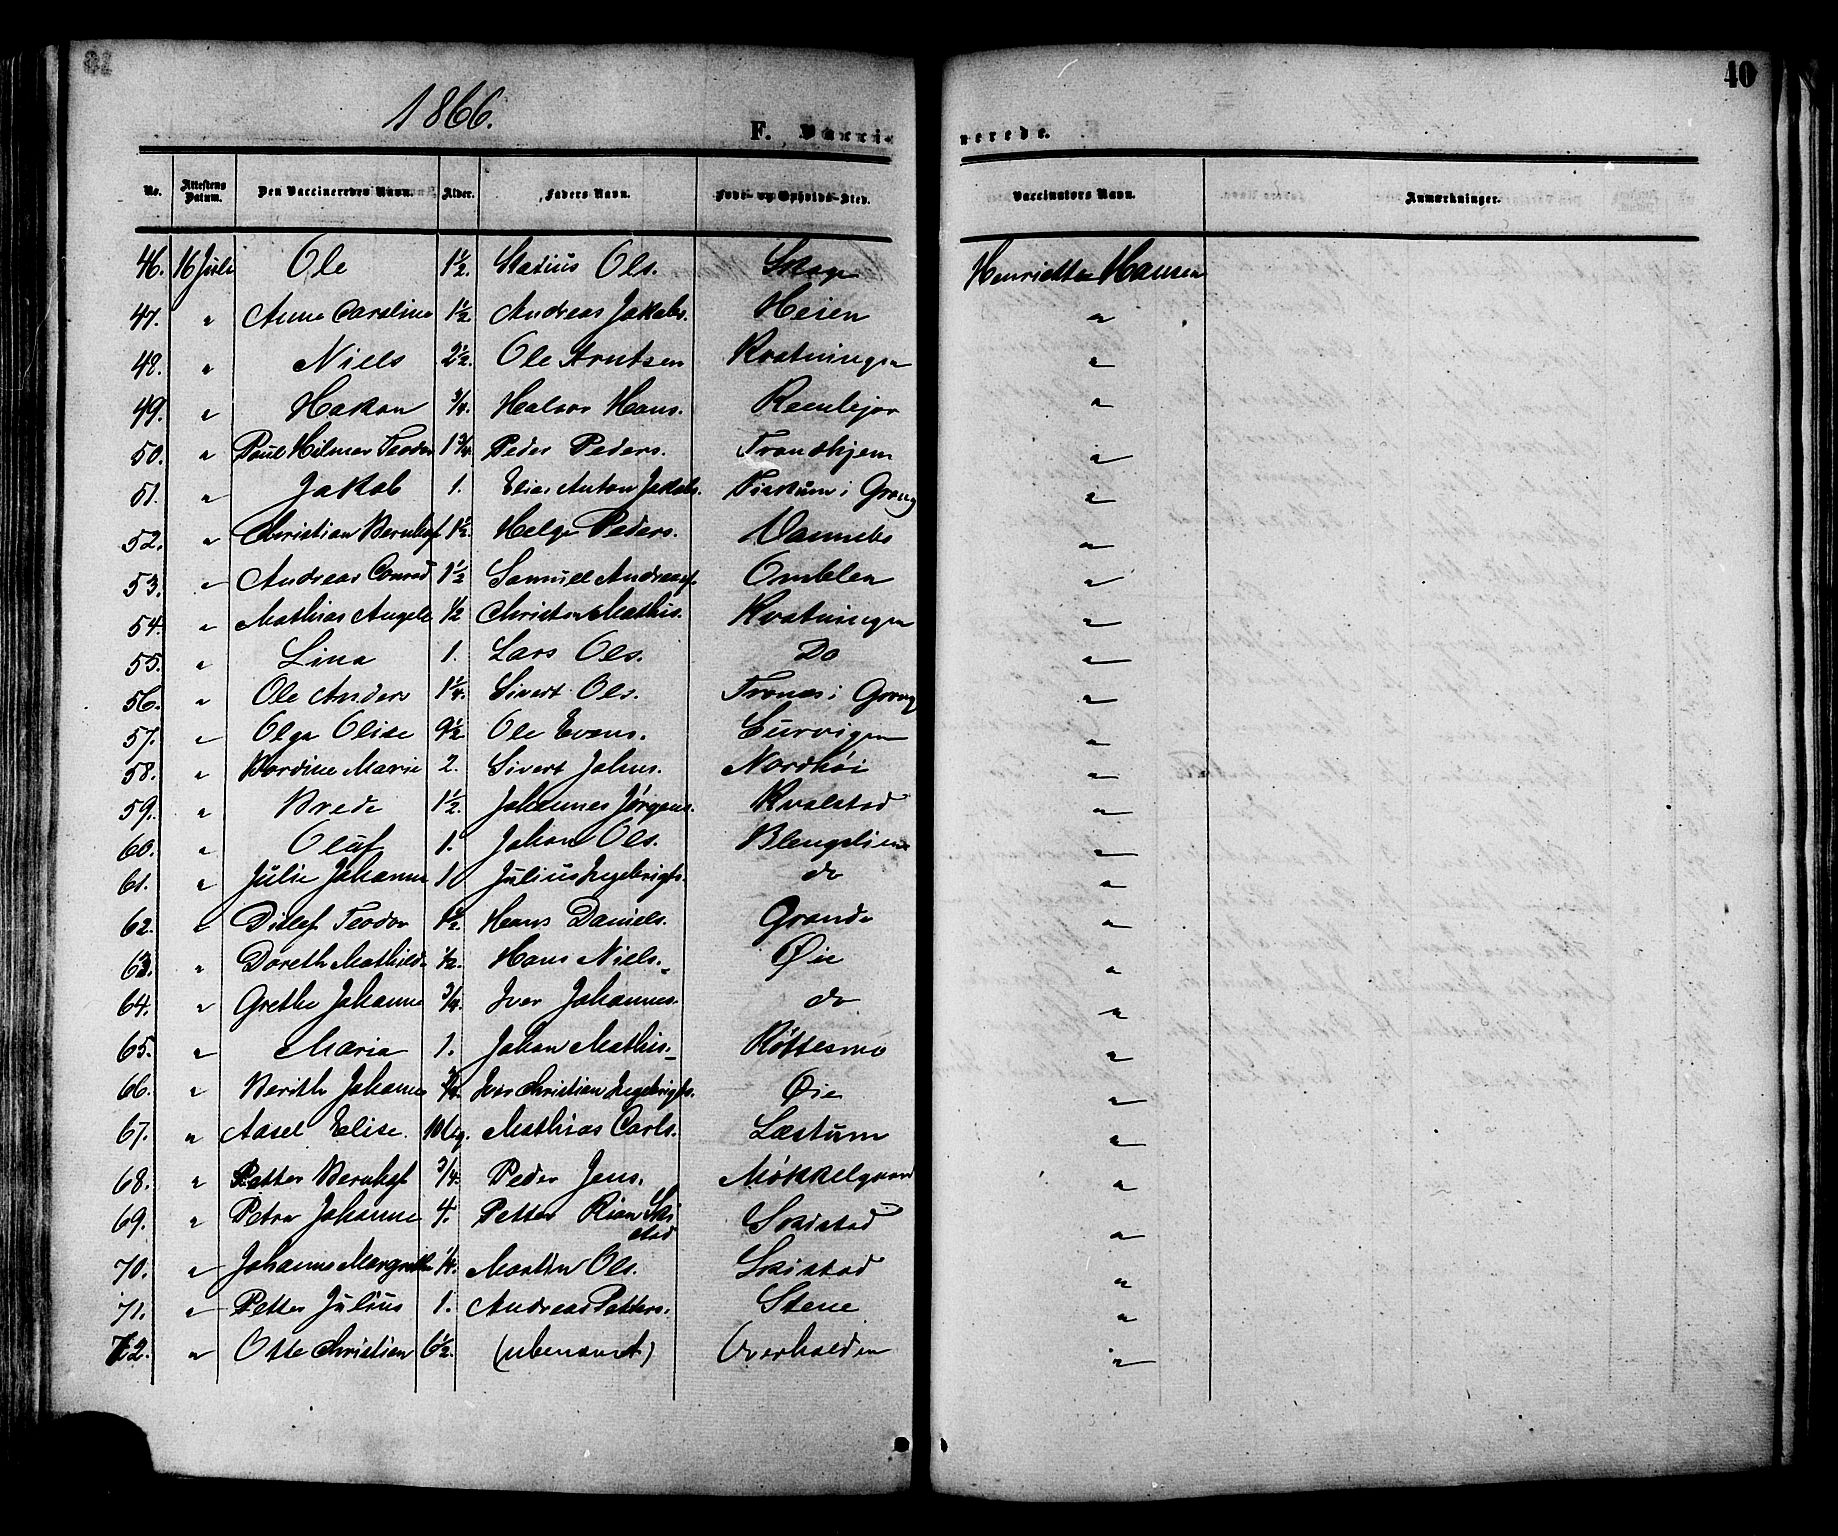 40
1866.
F. Vacci-
nerede.
No. Attestens Datum. Den Vaccineredes Navn. Alder. Faders Navn. Føde- og Opholds-Sted. Vaccinators Navn. Anmærkninger.
46. 16 Juli Ole 1½. Ols. Skage Henriette Hansen
47. " Anne Caroline 1½ Andreas Jakobs. Heien "
48. " Niels 2½ Ole Arntsen Kvatningen "
49. " Hakon ¾. Halvor Hans. "
50. " Poul Hilmer Teodor 1¾. Peder Peders. Trondhjem "
51. " Jakob 1. Elias Anton Jakobs. Fiskum i Grong "
52. " Christian Bernhof 1½. Helge Peders. Vannebo "
53. " Andreas Conrad 1½ Samuel Andreas Omblen "
54. " Mathias Angel ½ Christen Mathis. Kvatningen "
55. " Lina 1. Lars Ols. Do "
56. " Ole Anders 1¼. Sivert Ols. Tronæs i Grong "
57. " Olga Olise 9½ Ole Evens. Survigen "
58. " Bordine Marie 2. Sivert Johns. Nordhøi "
59. " Brede 1½. Johannes Jørgens. Kvalstad "
60. " Oluf 1. Johan Ols. Blengslien "
61. " Julie Johanne 1. Julius Ingebrigts. do "
62. " Ditlef Teodor 1½ Hans Daniels. Grande "
63. " Doreth Mathilde ½. Hans Niels. Øie "
64. " Grethe Johanne ¾. Iver Johannes. do "
65. " Maria 1. Johan Mathis. Røttesmo "
66. " Berith Johanne ¾. Iver Christian Ingebrigts. Øie "
67. " Aasel Elise. 10 Ug. Mathias Carls. Læstum "
68. " Petter Bernhof ¾. Peder Jens. Møkkelgaard "
69. " Petra Johanne 4. Petter Rian Ski
stad Skistad "
70. " Johanne Margrethe ¼. Martin Ols. Skistad "
71. " Petter Julius 1. Andreas Petters. Stene "
72. " Otte Christian 6½. (ubenævnt) Overhalden "